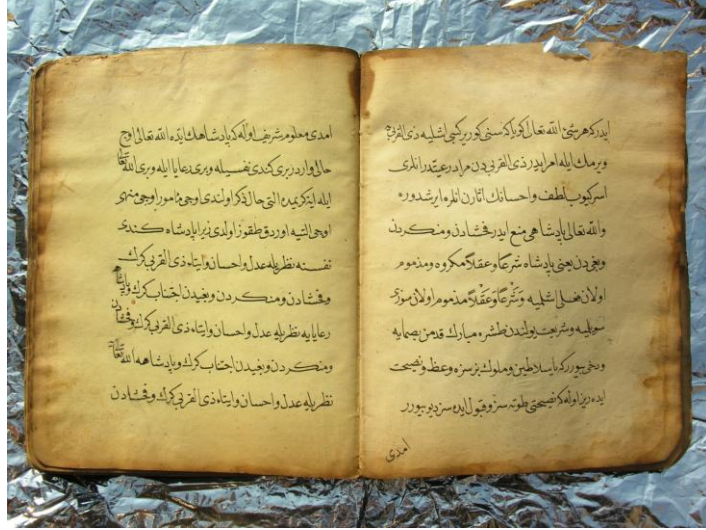 ايدرك هر شئ الله تعالى كويا كه سنى كورير كبى اشليه ذى القربى
ويرمك ايله امر ايدر ذى القربى دن مراد رعيتدر انلرى
اسركيوب لطف واحسانك اثارن انلره ايرشدوره
والله تعالى پادشاهى منع ايدر فحشادن ومنكردن
وبغيدن يعنى پادشاه شرعا وعقلاً مكروه ومذموم
اولان فعلى اشليه وشرعا وعقلاً مذموم اولان سوزى
سويليه وشريعت يولندن طشره مبارك قدمن بصمايه
ودخى بيورر كه يا سلاطين وملوك بز سزه وعظ ونصيحت
ايده ريز اوله كه نصيحتى طوته سز وقبول ايده سز ديو بيورر
امدى
امدى معلوم شريف اوله كه پادشاهك ايده الله تعالى اوج
حالى واردر برى كندى نفسيله وبرى رعايا ايله وبرى الله تعالى
ايله ايت كريمه ده التى حال ذكر اولندى اوجى مأمور اوجى منهى
اوجى التيه اوردق طقوز اولدى زيرا پادشاه كندى
نفسنه نظريله عدل واحسان وايتاء ذى القربى كرك
وفحشادن ومنكردن وبغيدن اجتناب كرك وپادشاه
رعايايه نظريله عدل واحسان وايتاء ذى القربى كرك وفحشادن
ومنكردن وبغيدن اجتناب كرك وپادشاهه الله تعالى
نظريله عدل واحسان وايتاء ذى القربى كرك وفحشادن